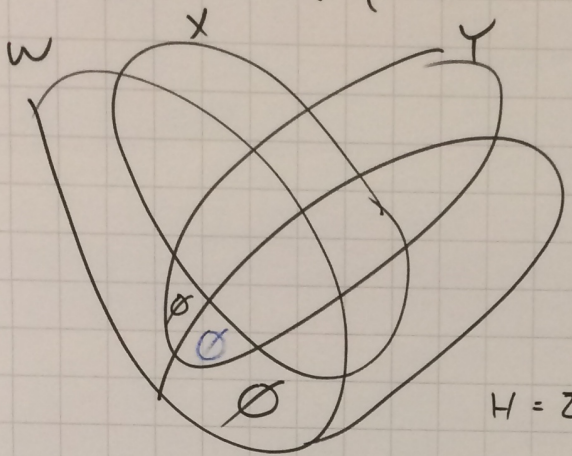 W
X
Y
∅
∅
∅
H = 2